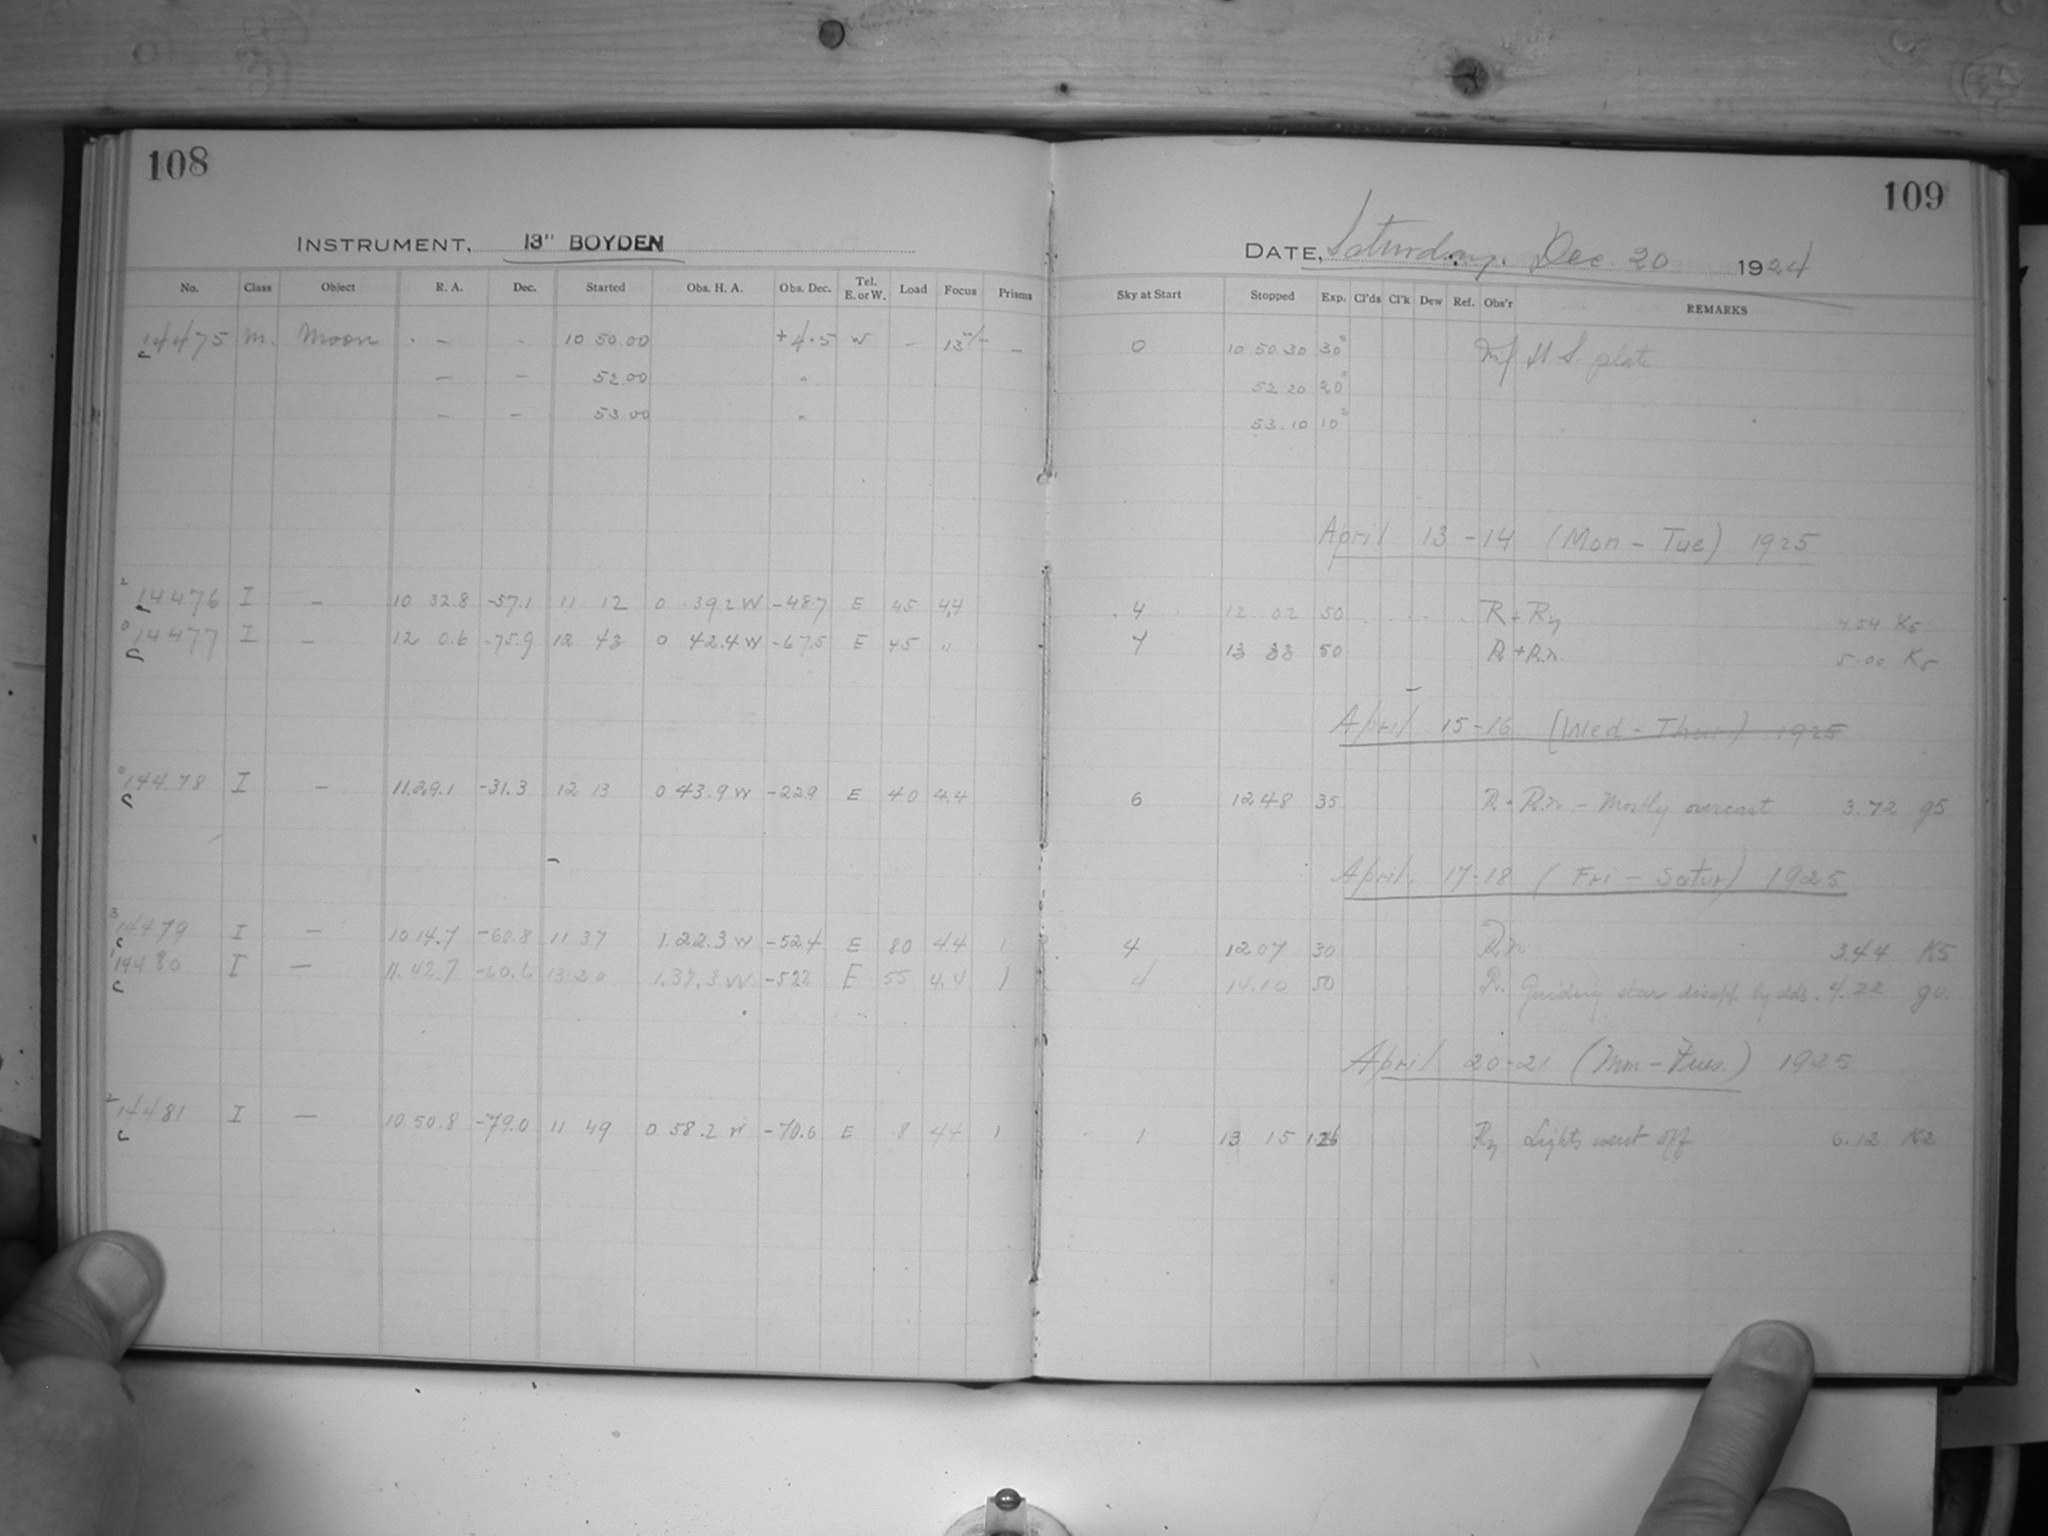 108
INSTRUMENT, 13" BOYDEN
No. Class Object R. A. Dec. Started Obs. H. A. Obs. Dec. Tel. E. or W. Load Focus Prisms
14475 M. Moon - - 10 50.00 +4.5 W - -
c
- - 52.00 "
- - 53.00 "
2
14476 I - 10 32.8 -57.1 11 12 0 39.2 W -48.7 E 45 4.4
0
14477 I - 12 0.6 -75.9 12 43 0 42.4 W -67.5 E 45 "
C
0
14478 I - 11.29.1 -31.3 12 13 0 43.9 W -22.9 E 40 4.4
C
3
14479 I - 10 14.7 -60.8 11 37 1.22.3 W -52.4 E 80 4.4 1
c
I - 11.42.7 -60.6 13 20 1.37.3 W -52.2 E 55 4.4 1
C
2
14481 I - 10 50.8 -79.0 11 49 0 58.2 W -70.6 E 8 4.4 1
C
109
DATE, Saturday. Dec 20 1924
Sky at Start Stopped Exp. Cl'ds Cl'k Dew Ref. Obs'r REMARKS
0 10 50 30 30s S. plate
52 20 20s
53.10 10s
April 13-14 (Mon - Tue) 1925
4 12 02 50 R + Ry 4.54 K5
4 13 33 50 R + Rn. 5.00 K5
April 15-16 (Wed - Thur) 1925
6 12 48 35 R + Rn - Mostly overcast 3.72 g5
April. 17-18 (Fri - Satur) 1925
4 12 07 30 Rn 3.44 K5
4 14.10 50 R. Guiding star by clds. 4.22
April 20-21 (Mon - Tues.) 1925
1 13 15 Ry Lights went off 6.12 K2